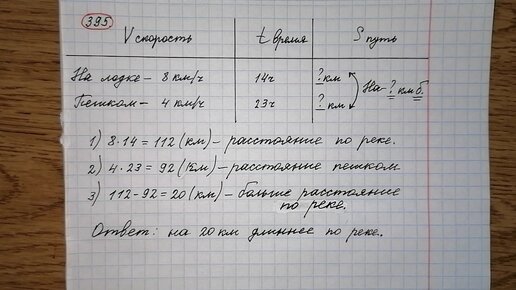 395.
V скорость t время S путь
На лодке – 8 км/ч 14ч ? км
На ? км б.
Пешком – 4 км/ч 23ч ? км
1) 8·14 = 112 (км) – расстояние по реке.
2) 4·23 = 92 (км) – расстояние пешком.
3) 112 – 92 = 20 (км) – больше расстояние
по реке.
Ответ: на 20 км длиннее по реке.